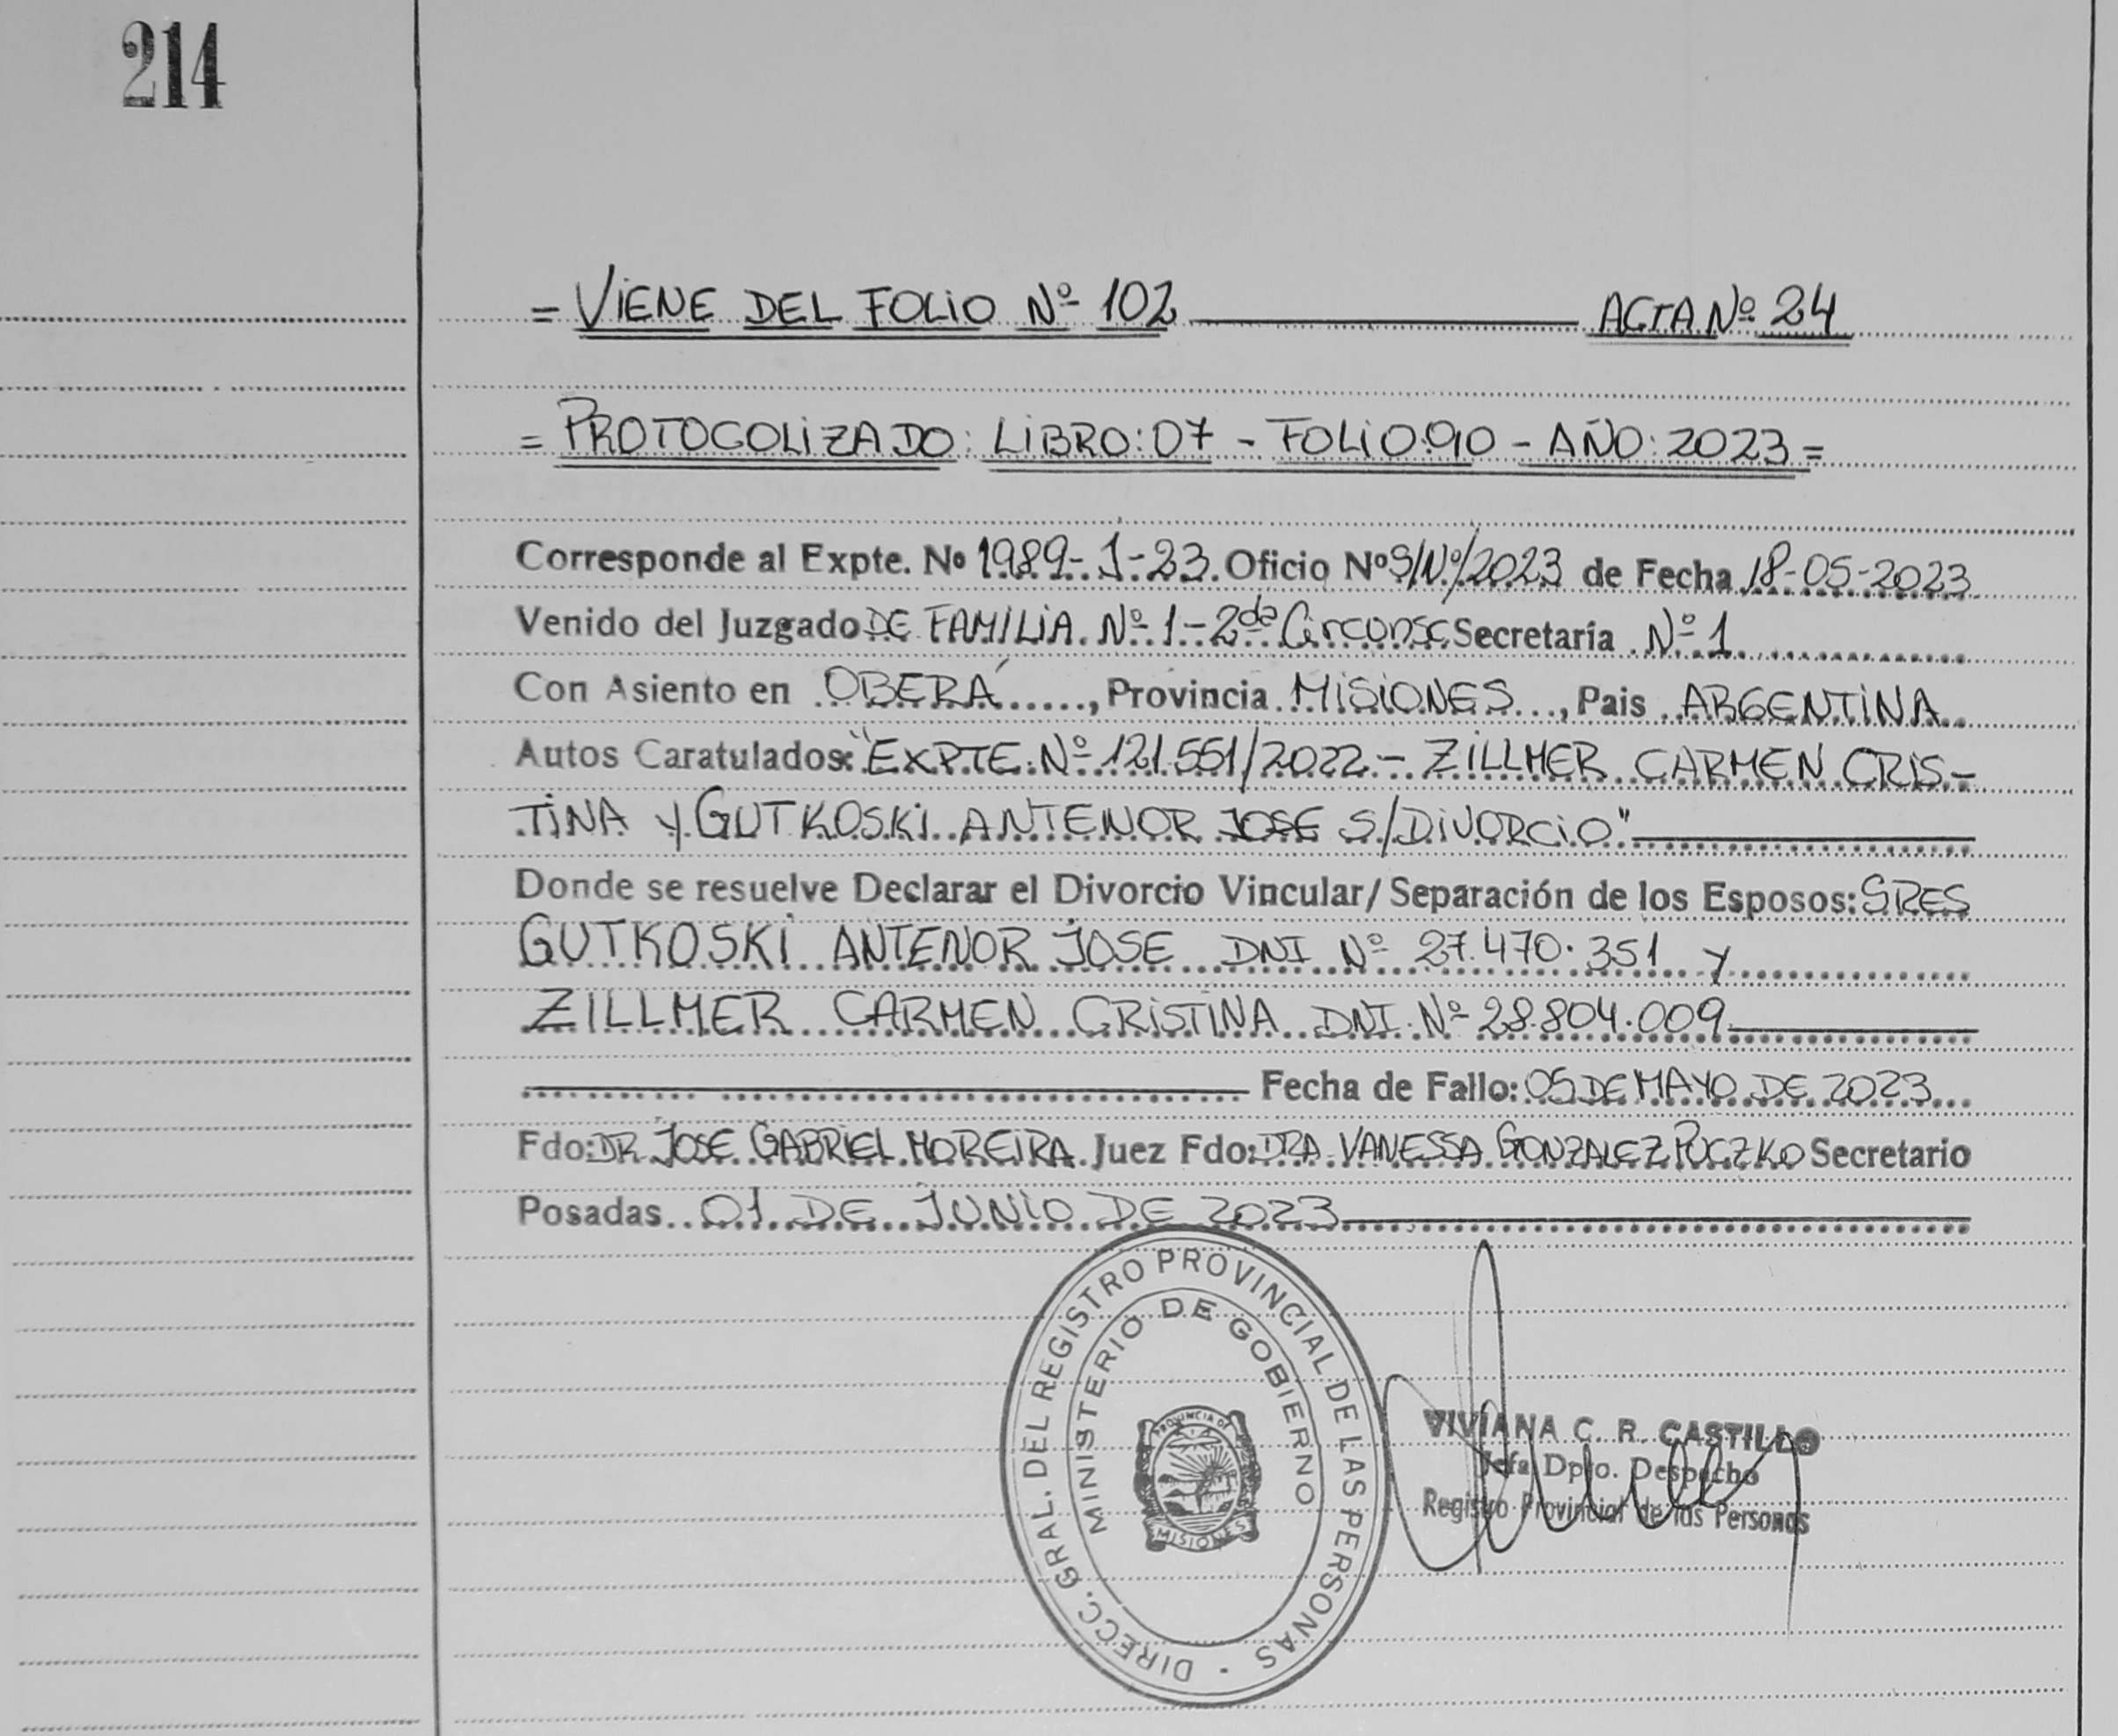 214
= VIENE DEL FOLIO Nº 102 ACTA Nº 24
= PROTOCOLIZADO: LIBRO: 07 - FOLIO: 90 - AÑO: 2023 =
Corresponde al Expte. Nº 1989-J-23. Oficio Nº S/Nº/2023 de Fecha 18-05-2023
Venido del Juzgado DE FAMILIA Nº 1 - 2da Circonsc Secretaria Nº 1
Con Asiento en OBERÁ, Provincia MISIONES, Pais ARGENTINA
Autos Caratulados: "EXPTE. Nº 121.551/2022 - ZILLMER CARMEN CRIS-
TINA Y GUTKOSKI ANTENOR JOSE S/DIVORCIO"
Donde se resuelve Declarar el Divorcio Vincular/ Separación de los Esposos: SRES
GUTKOSKI ANTENOR JOSE DNI Nº 27.470.351 y
ZILLMER CARMEN CRISTINA DNI Nº 28.804.009
Fecha de Fallo: 05 DE MAYO DE 2023
Fdo: DR JOSE GABRIEL MOREIRA Juez Fdo: DRA VANESSA GONZALEZ PUCZKO Secretario
Posadas 01 DE JUNIO DE 2023
DIRECC. GRAL. DEL REGISTRO PROVINCIAL DE LAS PERSONAS
MINISTERIO DE GOBIERNO
PROVINCIA DE
MISIONES
VIVIANA C. R. CASTILLO
Jefa Dpto. Despacho
Registro Provincial de las Personas